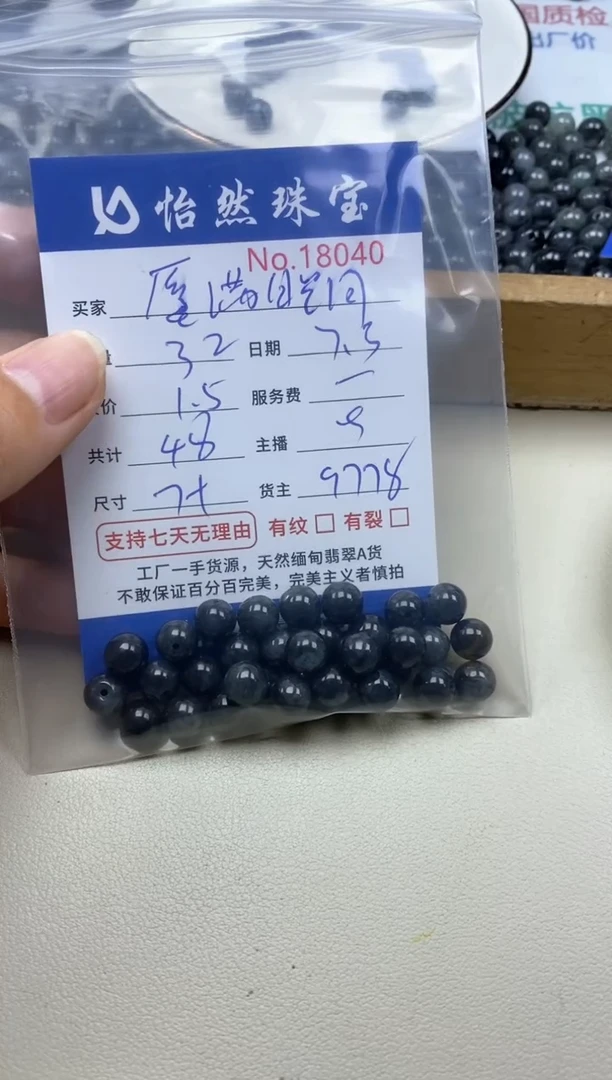 国质检
出厂价
怡然珠宝
No.18040
买家
量 32 日期 7.3
价 1.5 服务费 一
共计 48 主播
尺寸 7+ 货主 9778
支持七天无理由 有纹 □ 有裂 □
工厂一手货源，天然缅甸翡翠A货
不敢保证百分百完美，完美主义者慎拍